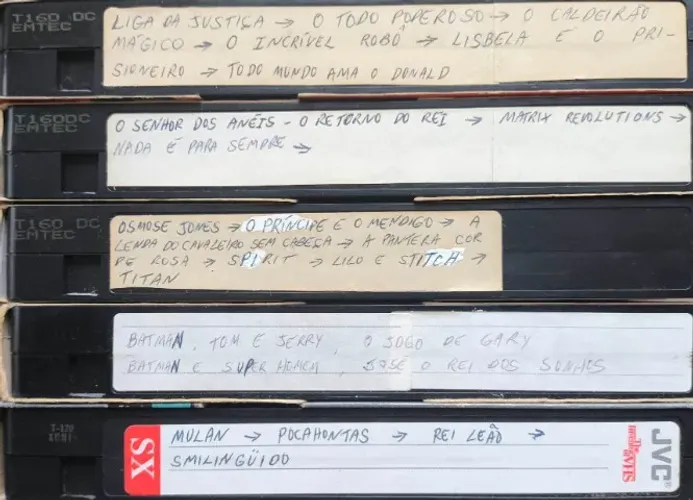 T160 DC
EMTEC
LIGA DA JUSTIÇA → O TODO PODEROSO → O CALDEIRÃO
MÁGICO → O INCRÍVEL ROBÔ → LISBELA E O PRI-
SIONEIRO → TODO MUNDO AMA O DONALD
T160DC
EMTEC
O SENHOR DOS ANÉIS - O RETORNO DO REI → MATRIX REVOLUTIONS →
NADA É PARA SEMPRE →
T160 DC
EMTEC
OSMOSE JONES → O PRÍNCIPE E O MENDIGO → A
LENDA DO CAVALEIRO SEM CABEÇA → A PANTERA COR
DE ROSA → SPIRIT → LILO E STITCH →
TITAN
BATMAN, TOM E JERRY, O JOGO DE GARY
BATMAN E SUPER HOMEM, JOSÉ O REI DOS SONHOS
T-120
SX
MULAN → POCAHONTAS → REI LEÃO →
SMILINGÜIDO
JVC
VHS